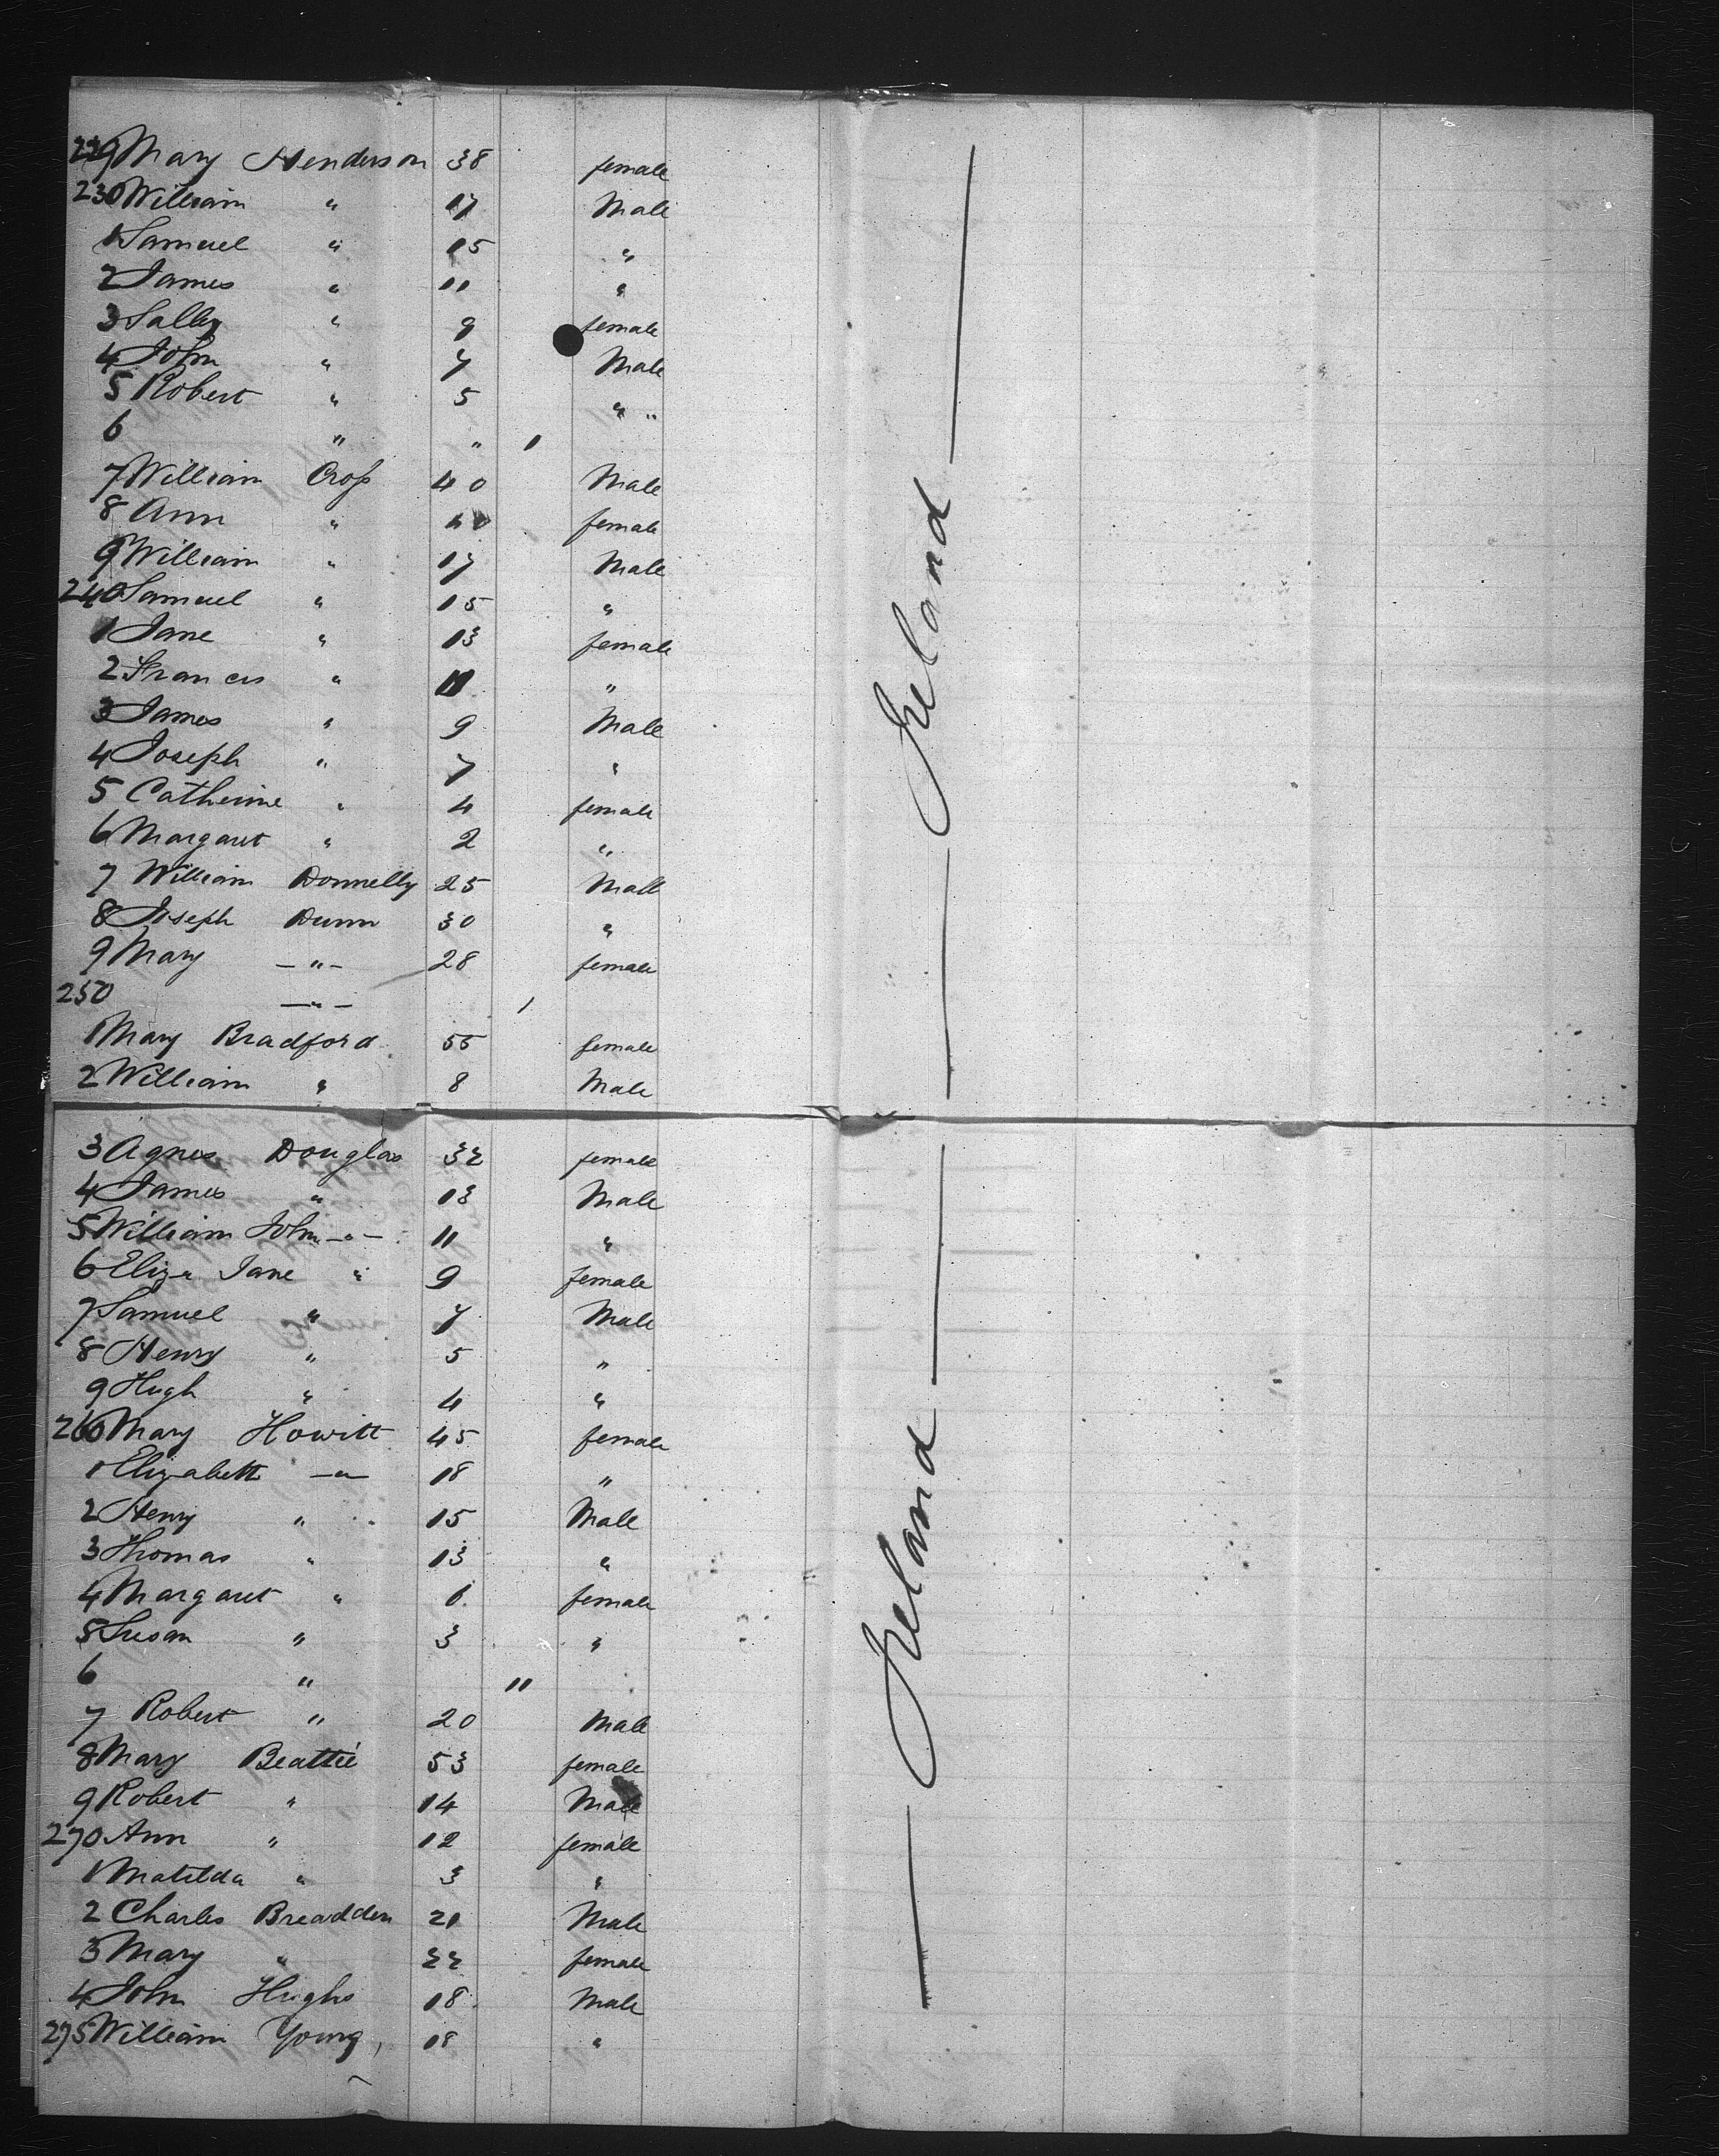 229 Mary Henderson 38 female
230 William " 17 Male
1 Samuel " 15 "
2 James " 11 "
3 Sally " 9 female
4 John " 7 Male
5 Robert " 5 " "
6 " " 1
7 William Cross 40 Male
8 Ann " 40 female
9 William " 17 Male
240 Samuel " 15 "
1 Jane " 13 female
2 Francis " 11 "
3 James " 9 Male
4 Joseph " 7 "
5 Catherine " 4 female
6 Margaret " 2 "
7 William Donnelly 25 Male
8 Joseph Dunn 30 "
9 Mary — " — 28 female
250 — " — 1
1 Mary Bradford 55 female
2 William " 8 Male
Ireland
3 Agnes Douglas 32 female
4 James " 13 Male
5 William John — " — 11 "
6 Eliza Jane " 9 female
7 Samuel " 7 Male
8 Henry " 5 "
9 Hugh " 4 "
260 Mary Howitt 45 female
1 Elizabeth — " — 18 "
2 Henry " 15 Male
3 Thomas " 13 "
4 Margaret " 6 female
5 Susan " 3 "
6 " 11
7 Robert " 20 Male
8 Mary Beattie 53 female
9 Robert " 14 Male
270 Ann " 12 female
1 Matilda " 3 "
2 Charles Breadden 21 Male
3 Mary " 22 female
4 John Hughs 18 Male
275 William Young 18 "
Ireland